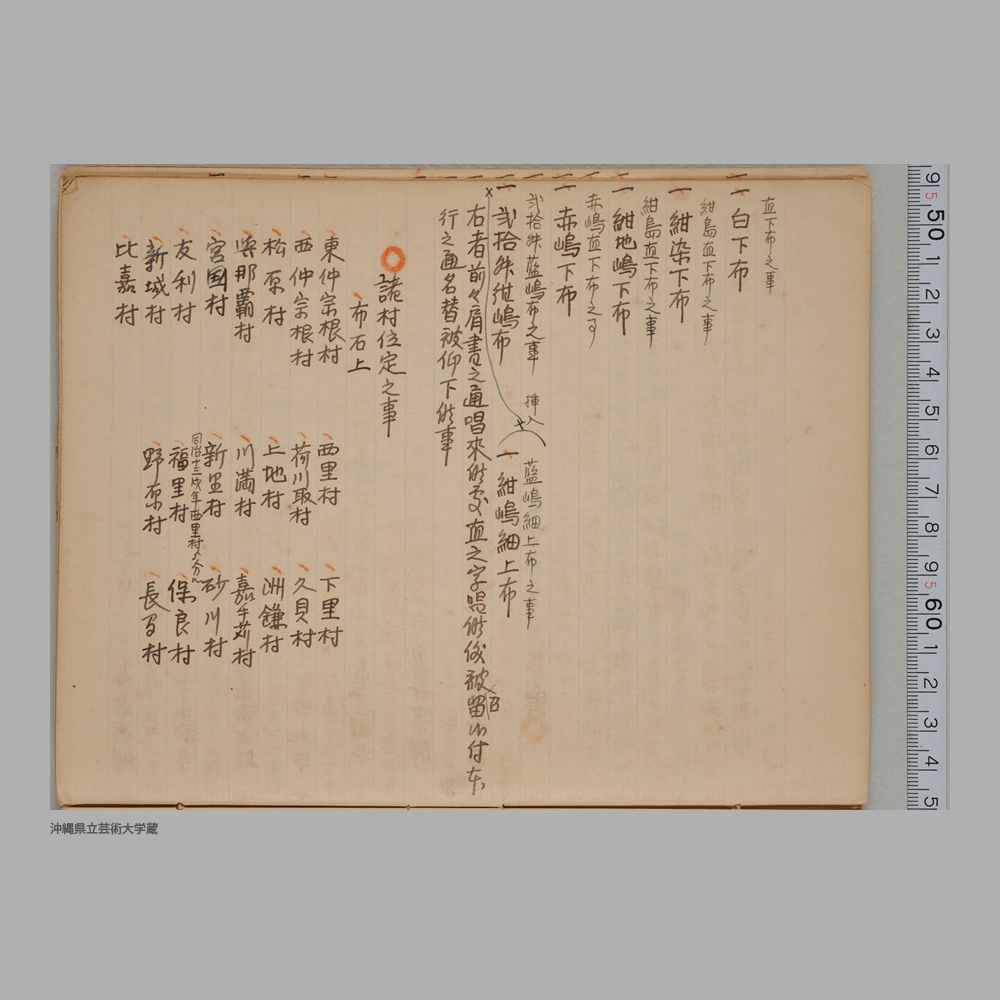 直下布之事
一 白下布
紺島直下布之事
一 紺染下布
紺島直下布之事
一 紺地嶋下布
赤嶋直下布之了
一 赤嶋下布
弐拾舛藍嶋布之事
一 弐拾舛紺嶋布
挿入
藍嶋細上布之事
一 紺嶋細上布
右者前々肩書之通唱來候處直之字唱候儀被留
行之通名替被仰下候事
諸村位定之事
布石上
東仲宗根村 西里村 下里村
西仲宗根村 荷川取村 久貝村
松原村 上地村 洲鎌村
与那覇村 川満村 嘉手苅村
宮國村 新里村 砂川村
同治十三戌年西里村ゟ分ル
友利村 福里村 保良村
新城村 野原村 長間村
比嘉村
9 5 50 1 2 3 4 5 6 7 8 9 5 60 1 2 3 4 5
沖縄県立芸術大学蔵